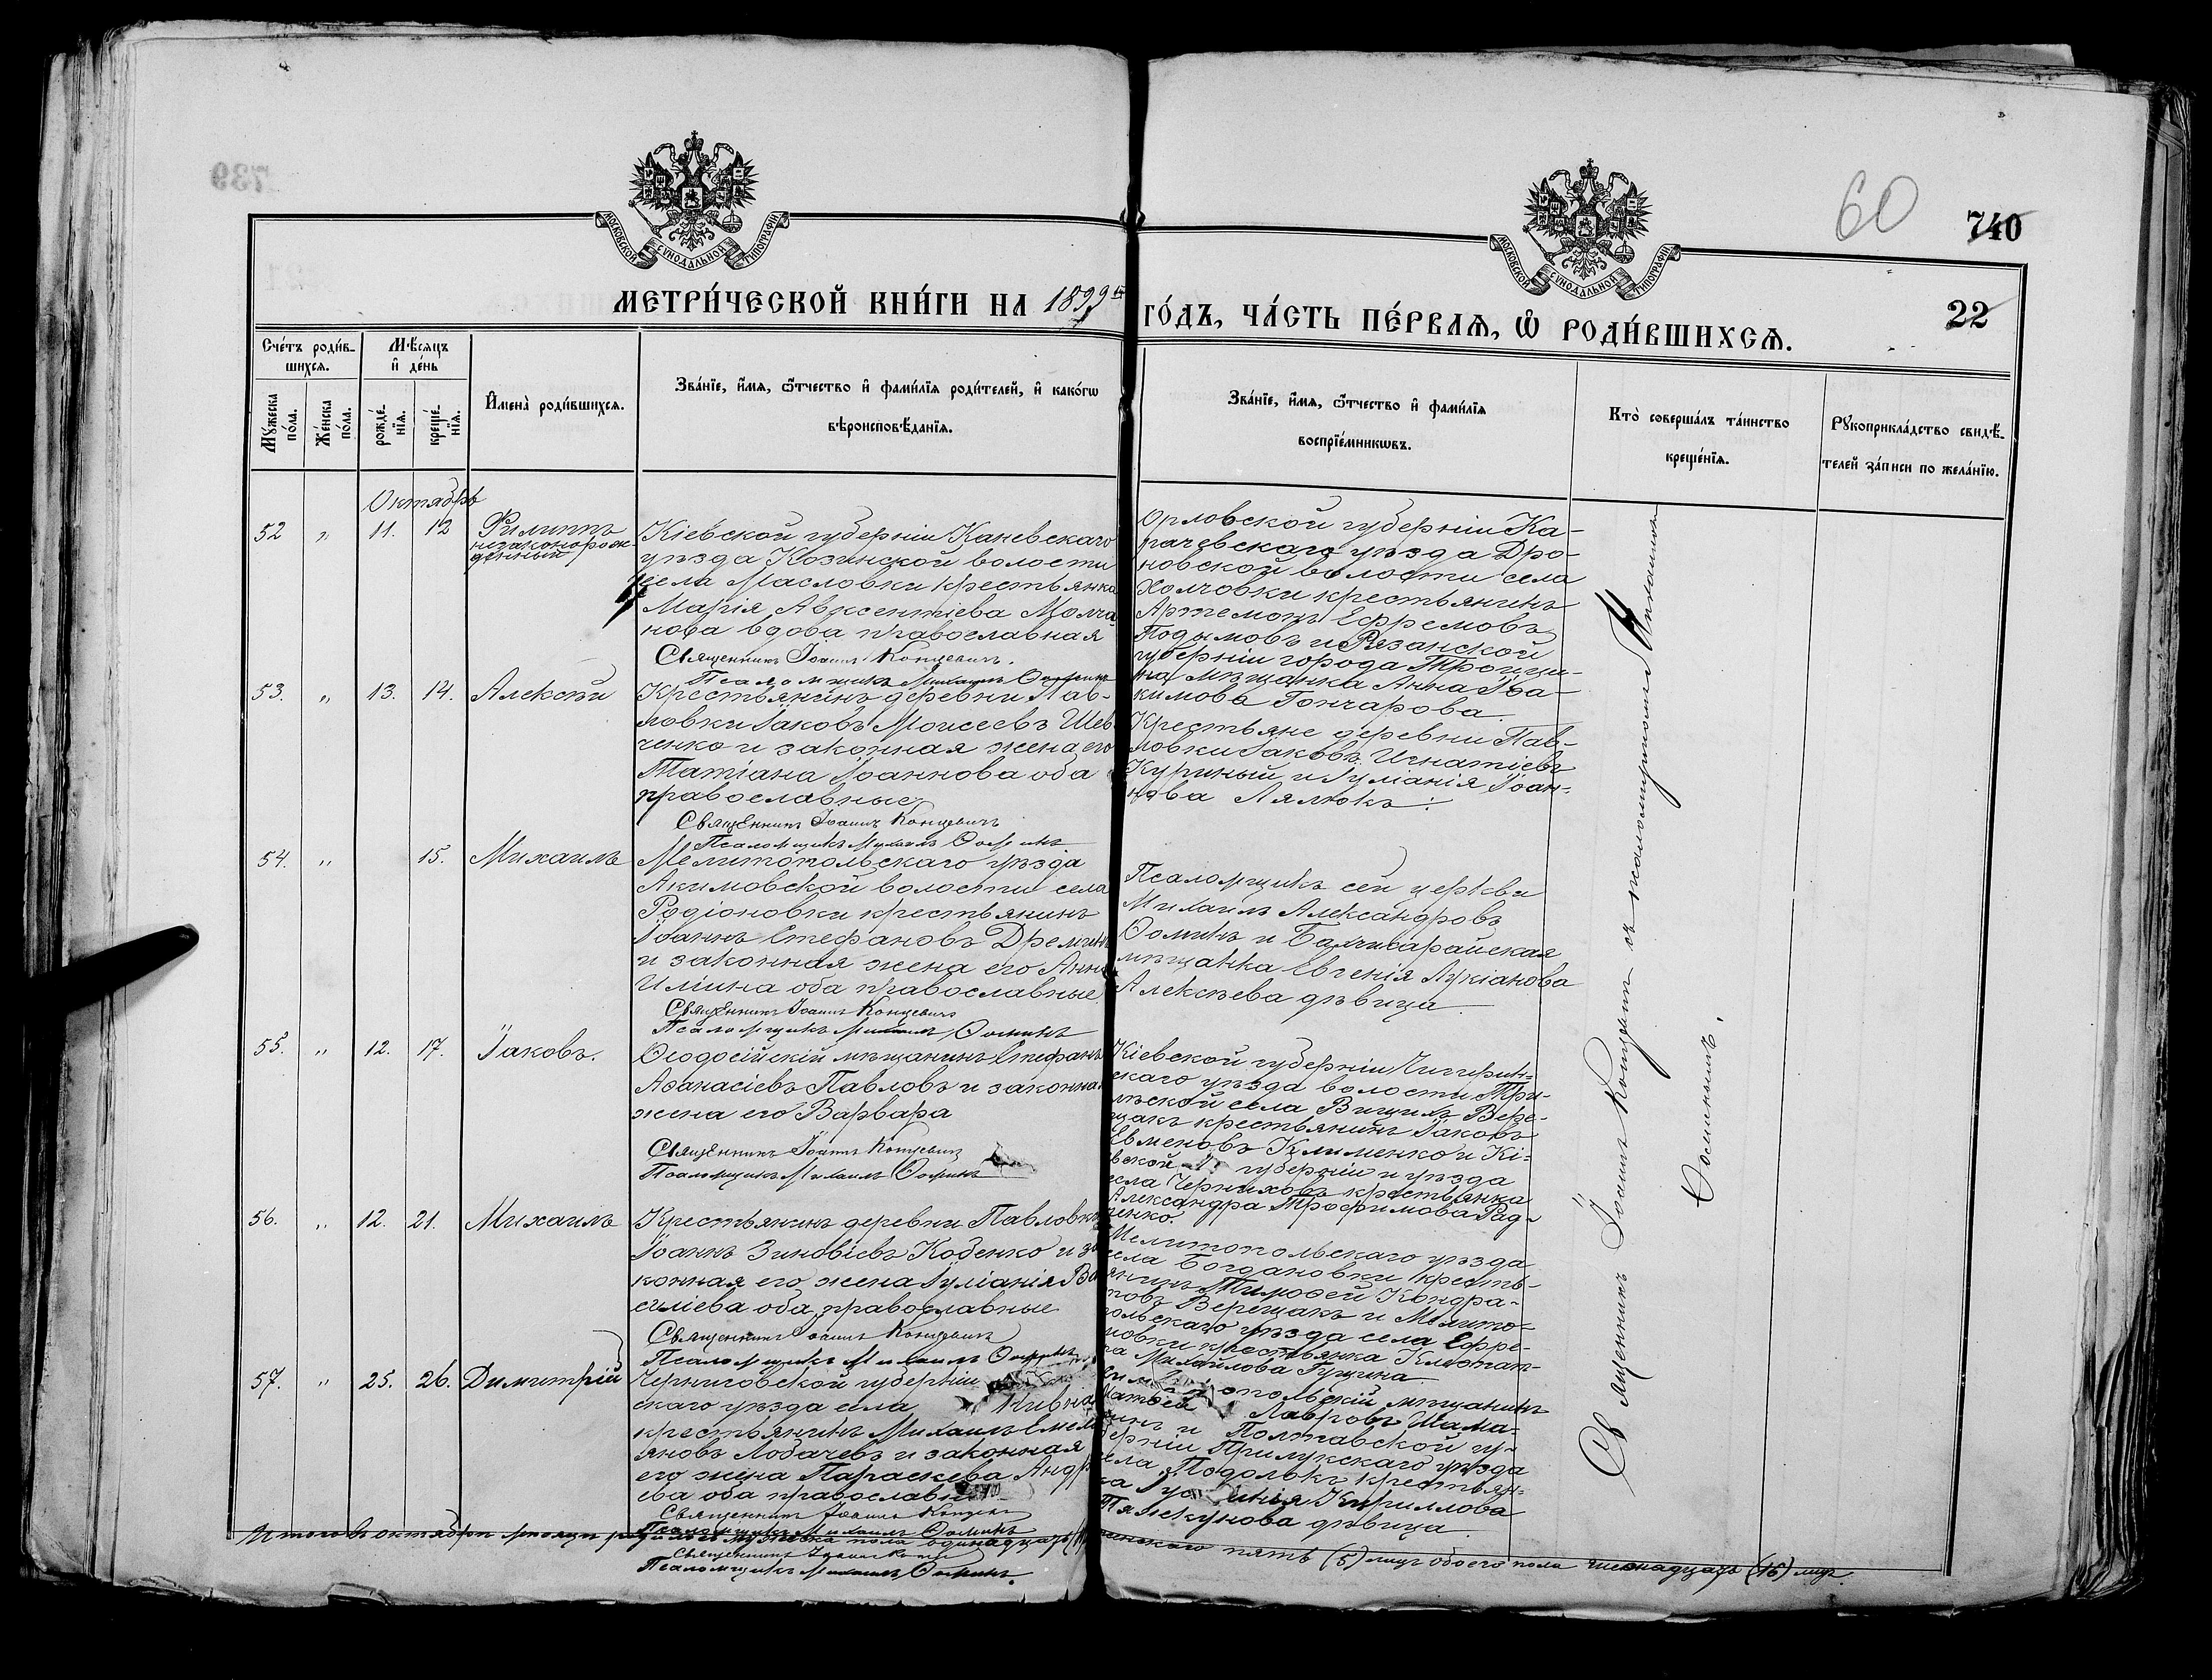 739
МОСКОВСКОЙ СУНОДАЛЬНОЙ ТИПОГРАФІИ
МОСКОВСКОЙ СУНОДАЛЬНОЙ ТИПОГРАФІИ
60
740
22
МЕТРИ́ЧЕСКОЙ КНИ́ГИ НА 1899й ГО́ДЪ, ЧА́СТЬ ПЕ́РВАѦ, Ѡ РОДИ́ВШИХСѦ.
Сче́тъ роди́в-
шихсѧ.
Мѣ́сѧцъ
и҆ де́нь
Мꙋ́жеска
по́ла.
Же́нска
по́ла.
рожде́-
нїѧ.
креще́-
нїѧ.
И҆мена̀ роди́вшихсѧ.
Зва́нїе, и҆́мѧ, ѻ҆́тчество и҆ фами́лїѧ роди́телей, и҆ како́гѡ
вѣроисповѣ́данїѧ.
Зва́нїе, и҆́мѧ, ѻ҆́тчество и҆ фами́лїѧ
воспрїе́мникѡвъ.
Кто̀ соверша́лъ та́инство
креще́нїѧ.
Рꙋкоприкла́дство свидѣ́-
телей за́писи по жела́нїю.
Октябрь
52 " 11. 12 Филиппъ
незаконорож-
денный
Кіевской губерніи Каневскаго
уѣзда Козинской волости
села Масловки крестьянка
Марія Авксентіева Молча
нова вдова православная
Священникъ Іоаннъ Концевичъ.
Псаломщикъ Михаилъ Ѳоминъ
Орловской губерніи Ка-
рачевскаго уѣзда Дро-
новской волости села
Холчовки крестьянинъ
Артемонъ Ефремовъ
Подымовъ и Рязанской
губерніи города
мѣщанка Анна Іоа-
кимова Гончарова.
53. " 13. 14. Алексѣй
Крестьянинъ деревни Пав-
ловки Іаковъ Моисеевъ Шев
ченко и законная жена его
Татіана Іоаннова оба
православные
Священникъ Іоаннъ Концевичъ
Псаломщикъ Михаилъ Ѳоминъ
Крестьяне деревни Пав-
ловки Іаковъ Игнатіевъ
Куриный и Іуліанія Іоан-
нова Лялюкъ.
54. " 15. Михаилъ
Мелитопольскаго уѣзда
Акимовской волости села
Родіоновки крестьянинъ
Іоаннъ Стефановъ
и законная жена его Анна
Иліина оба православные
Священникъ Іоаннъ Концевичъ
Псаломщикъ Михаилъ Ѳоминъ
Псаломщикъ сей церкви
Михаилъ Александровъ
Ѳоминъ и Бахчисарайская
мѣщанка Евгенія Лукіанова
Алексѣева дѣвица
55. " 12. 17. Іаковъ.
Ѳеодосійскій мѣщанинъ Стефанъ
Аѳанасіевъ Павловъ и законна
жена его Варвара
Священникъ Іоаннъ Концевичъ
Псаломщикъ Михаилъ Ѳоминъ
Кіевской губерніи Чигирин-
скаго уѣзда волости Три-
лѣской села Вере-
щакъ крестьянинъ Іаковъ
Евменовъ Клименко и Кі-
евской губерніи и уѣзда
села Черняховъ крестьянка
Александра Трофимова Рад-
ченко.
56. " 12. 21. Михаилъ
Крестьянинъ деревни Павловки
Іоаннъ Зиновіевъ Коденко и за
конная его жена Іуліанія Ва
силіева оба православные
Священникъ Іоаннъ Концевичъ
Псаломщикъ Михаилъ Ѳоминъ
Мелитопольскаго уѣзда
села Богдановки кресть-
янинъ Тимоѳей Кондра-
товъ Верещакъ и Мелито-
польскаго уѣзда села Ефре-
мовки крестьянка Клеопат-
ра Михайлова Гущина
57. " 25. 26. Димитрій
Черниговской губерніи
скаго уѣзда села
крестьянинъ Михаилъ Емель
яновъ Лобачевъ и законная
его жена Параскева Андре
ева оба православные
Священникъ Іоаннъ Концевичъ
Псаломщикъ Михаилъ Ѳоминъ
опольскій мѣщанинъ
Матѳей Лавровъ Шама-
инъ и Полтавской гу-
берніи Прилукскаго уѣзда
села крестьян-
ка Кириллова
Тяжкунова дѣвица
Священникъ Іоаннъ Концевичъ съ псаломщикомъ Михаиломъ
Ѳоминымъ.
Итого въ октябрѣ мѣсяцѣ родилось мужеска пола одинадцать (11) женскаго пять (5) лицъ обоего пола шестнадцать (16) лицъ.
Священникъ Іоаннъ Концевичъ
Псаломщикъ Михаилъ Ѳоминъ.